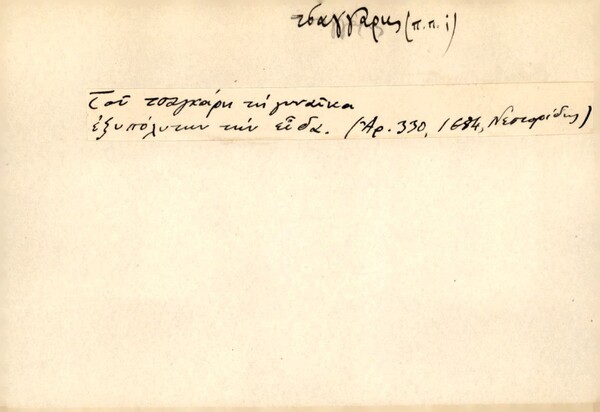 τσαγγάρης (π.π.ι)
Τοῦ τσαγκάρη τή γυναῖκα
ἐξυπόλυτην τήν εἶδα. (Ἀρ. 330, 1684, Νεστορίδης)